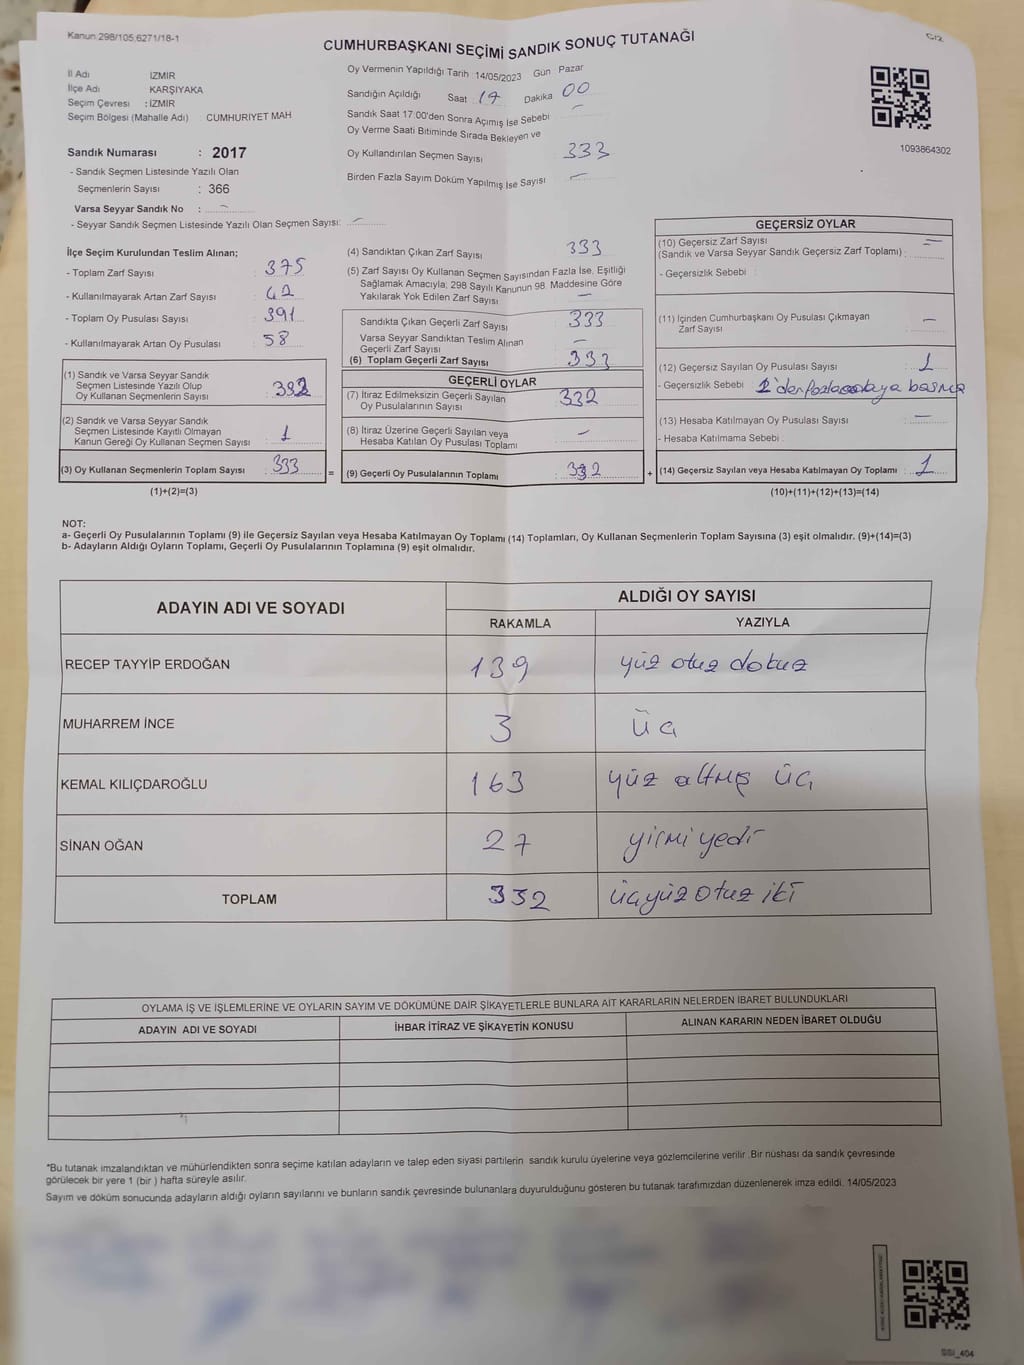 Kanun:298/105,6271/18-1
C/2
CUMHURBAŞKANI SEÇİMİ SANDIK SONUÇ TUTANAĞI
İl Adı İZMİR
İlçe Adı KARŞIYAKA
Seçim Çevresi : İZMİR
Seçim Bölgesi (Mahalle Adı) CUMHURİYET MAH
Sandık Numarası : 2017
- Sandık Seçmen Listesinde Yazılı Olan
Seçmenlerin Sayısı : 366
Varsa Seyyar Sandık No : –
- Seyyar Sandık Seçmen Listesinde Yazılı Olan Seçmen Sayısı: –
Oy Vermenin Yapıldığı Tarih : 14/05/2023 Gün Pazar
Sandığın Açıldığı Saat 17 Dakika 00
Sandık Saat 17:00'den Sonra Açımış İse Sebebi –
Oy Verme Saati Bitiminde Sırada Bekleyen ve
Oy Kullandırılan Seçmen Sayısı 333
Birden Fazla Sayım Döküm Yapılmış İse Sayısı –
1093864302
İlçe Seçim Kurulundan Teslim Alınan;
- Toplam Zarf Sayısı : 375
- Kullanılmayarak Artan Zarf Sayısı : 42
- Toplam Oy Pusulası Sayısı : 391
- Kullanılmayarak Artan Oy Pusulası : 58
(1) Sandık ve Varsa Seyyar Sandık
Seçmen Listesinde Yazılı Olup
Oy Kullanan Seçmenlerin Sayısı : 332
(2) Sandık ve Varsa Seyyar Sandık
Seçmen Listesinde Kayıtlı Olmayan
Kanun Gereği Oy Kullanan Seçmen Sayısı : 1
(3) Oy Kullanan Seçmenlerin Toplam Sayısı : 333 =
(1)+(2)=(3)
(4) Sandıktan Çıkan Zarf Sayısı 333
(5) Zarf Sayısı Oy Kullanan Seçmen Sayısından Fazla İse, Eşitliği
Sağlamak Amacıyla; 298 Sayılı Kanunun 98. Maddesine Göre
Yakılarak Yok Edilen Zarf Sayısı –
Sandıkta Çıkan Geçerli Zarf Sayısı : 333
Varsa Seyyar Sandıktan Teslim Alınan
Geçerli Zarf Sayısı –
(6) Toplam Geçerli Zarf Sayısı : 333
GEÇERLİ OYLAR
(7) İtiraz Edilmeksizin Geçerli Sayılan
Oy Pusulalarının Sayısı : 332
(8) İtiraz Üzerine Geçerli Sayılan veya
Hesaba Katılan Oy Pusulası Toplamı : –
(9) Geçerli Oy Pusulalarının Toplamı : 332 +
GEÇERSİZ OYLAR
(10) Geçersiz Zarf Sayısı –
(Sandık ve Varsa Seyyar Sandık Geçersiz Zarf Toplamı) :
- Geçersizlik Sebebi :
(11) İçinden Cumhurbaşkanı Oy Pusulası Çıkmayan –
Zarf Sayısı :
(12) Geçersiz Sayılan Oy Pusulası Sayısı : 1
- Geçersizlik Sebebi : 1'den fazla basma
(13) Hesaba Katılmayan Oy Pusulası Sayısı : –
- Hesaba Katılmama Sebebi :
(14) Geçersiz Sayılan veya Hesaba Katılmayan Oy Toplamı : 1
(10)+(11)+(12)+(13)=(14)
NOT:
a- Geçerli Oy Pusulalarının Toplamı (9) ile Geçersiz Sayılan veya Hesaba Katılmayan Oy Toplamı (14) Toplamları, Oy Kullanan Seçmenlerin Toplam Sayısına (3) eşit olmalıdır. (9)+(14)=(3)
b- Adayların Aldığı Oyların Toplamı, Geçerli Oy Pusulalarının Toplamına (9) eşit olmalıdır.
ADAYIN ADI VE SOYADI ALDIĞI OY SAYISI
RAKAMLA YAZIYLA
RECEP TAYYİP ERDOĞAN 139 yüz otuz dokuz
MUHARREM İNCE 3 üç
KEMAL KILIÇDAROĞLU 163 yüz altmış üç
SİNAN OĞAN 27 yirmi yedi
TOPLAM 332 üçyüz otuz iki
OYLAMA İŞ VE İŞLEMLERİNE VE OYLARIN SAYIM VE DÖKÜMÜNE DAİR ŞİKAYETLERLE BUNLARA AİT KARARLARIN NELERDEN İBARET BULUNDUKLARI
ADAYIN ADI VE SOYADI İHBAR İTİRAZ VE ŞİKAYETİN KONUSU ALINAN KARARIN NEDEN İBARET OLDUĞU
*Bu tutanak imzalandıktan ve mühürlendikten sonra seçime katılan adayların ve talep eden siyasi partilerin sandık kurulu üyelerine veya gözlemcilerine verilir .Bir nüshası da sandık çevresinde
görülecek bir yere 1 (bir ) hafta süreyle asılır.
Sayım ve döküm sonucunda adayların aldığı oyların sayılarını ve bunların sandık çevresinde bulunanlara duyurulduğunu gösteren bu tutanak tarafımızdan düzenlenerek imza edildi. 14/05/2023
SSI_404